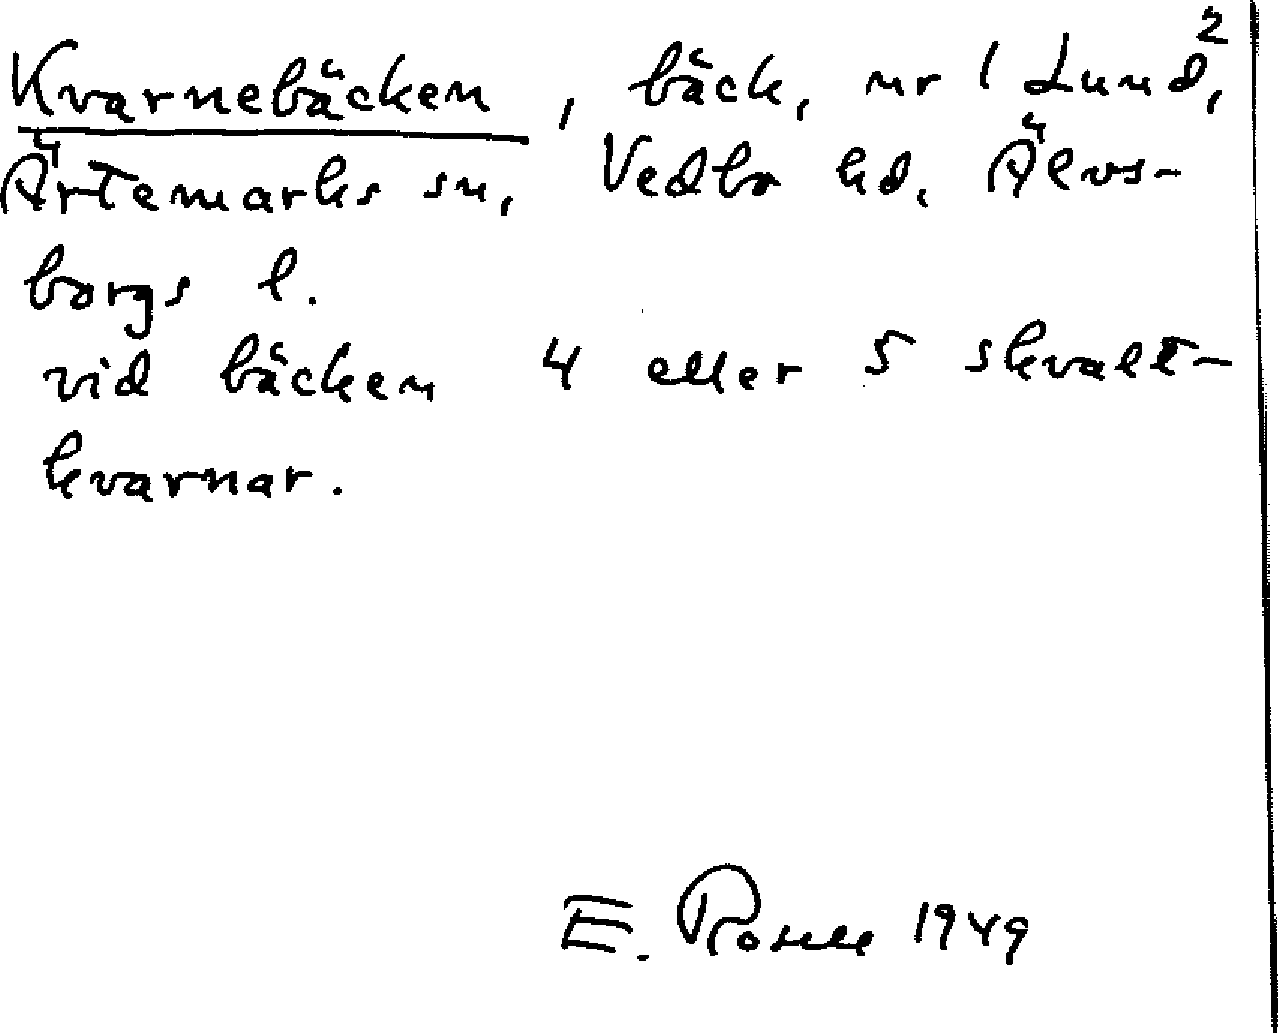 Kvarnebäcken, bäck, nr 1 Lund²,
Ärtemarks sn, Vedbo hd. Älvs-
borgs l.
vid bäcken 4 eller 5 skvalt-
kvarnar.
E. 1949